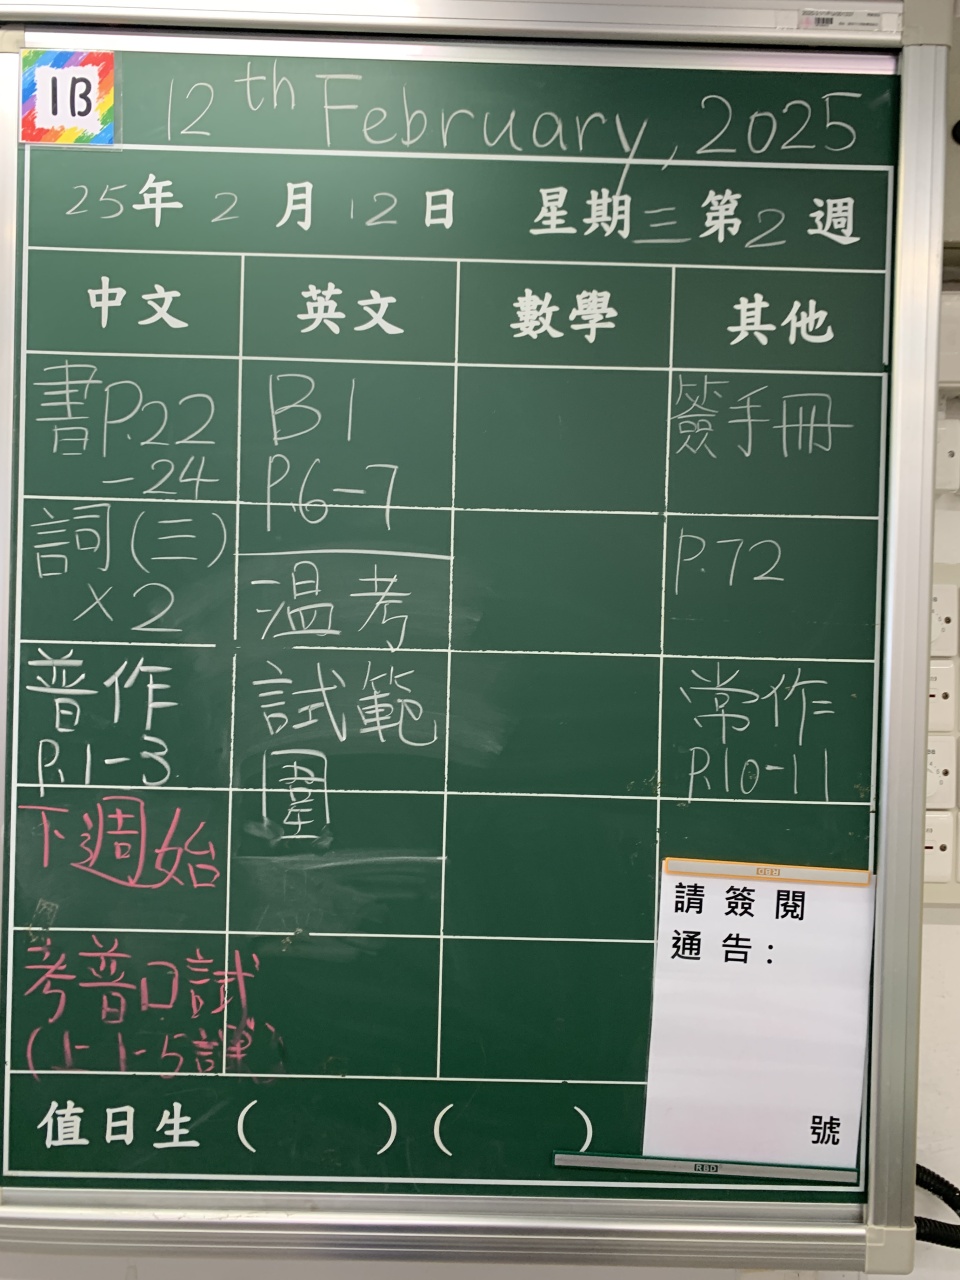 1B
12th February, 2025
25年2月12日 星期三第2週
中文 英文 數學 其他
書P.22
-24
詞(三)
×2
普作
P.1-3
下週始
考普口試
(上1-5課)
B1
P.6-7
溫考
試範
圍
簽手冊
P.72
常作
P.10-11
請簽閱
通告:
號
RBD
RBD
值日生( )( )